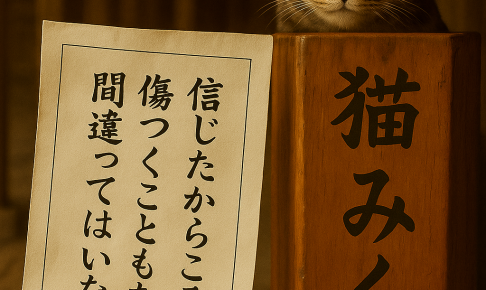 信じたからこ
傷つくことも
間違ってはい
猫み